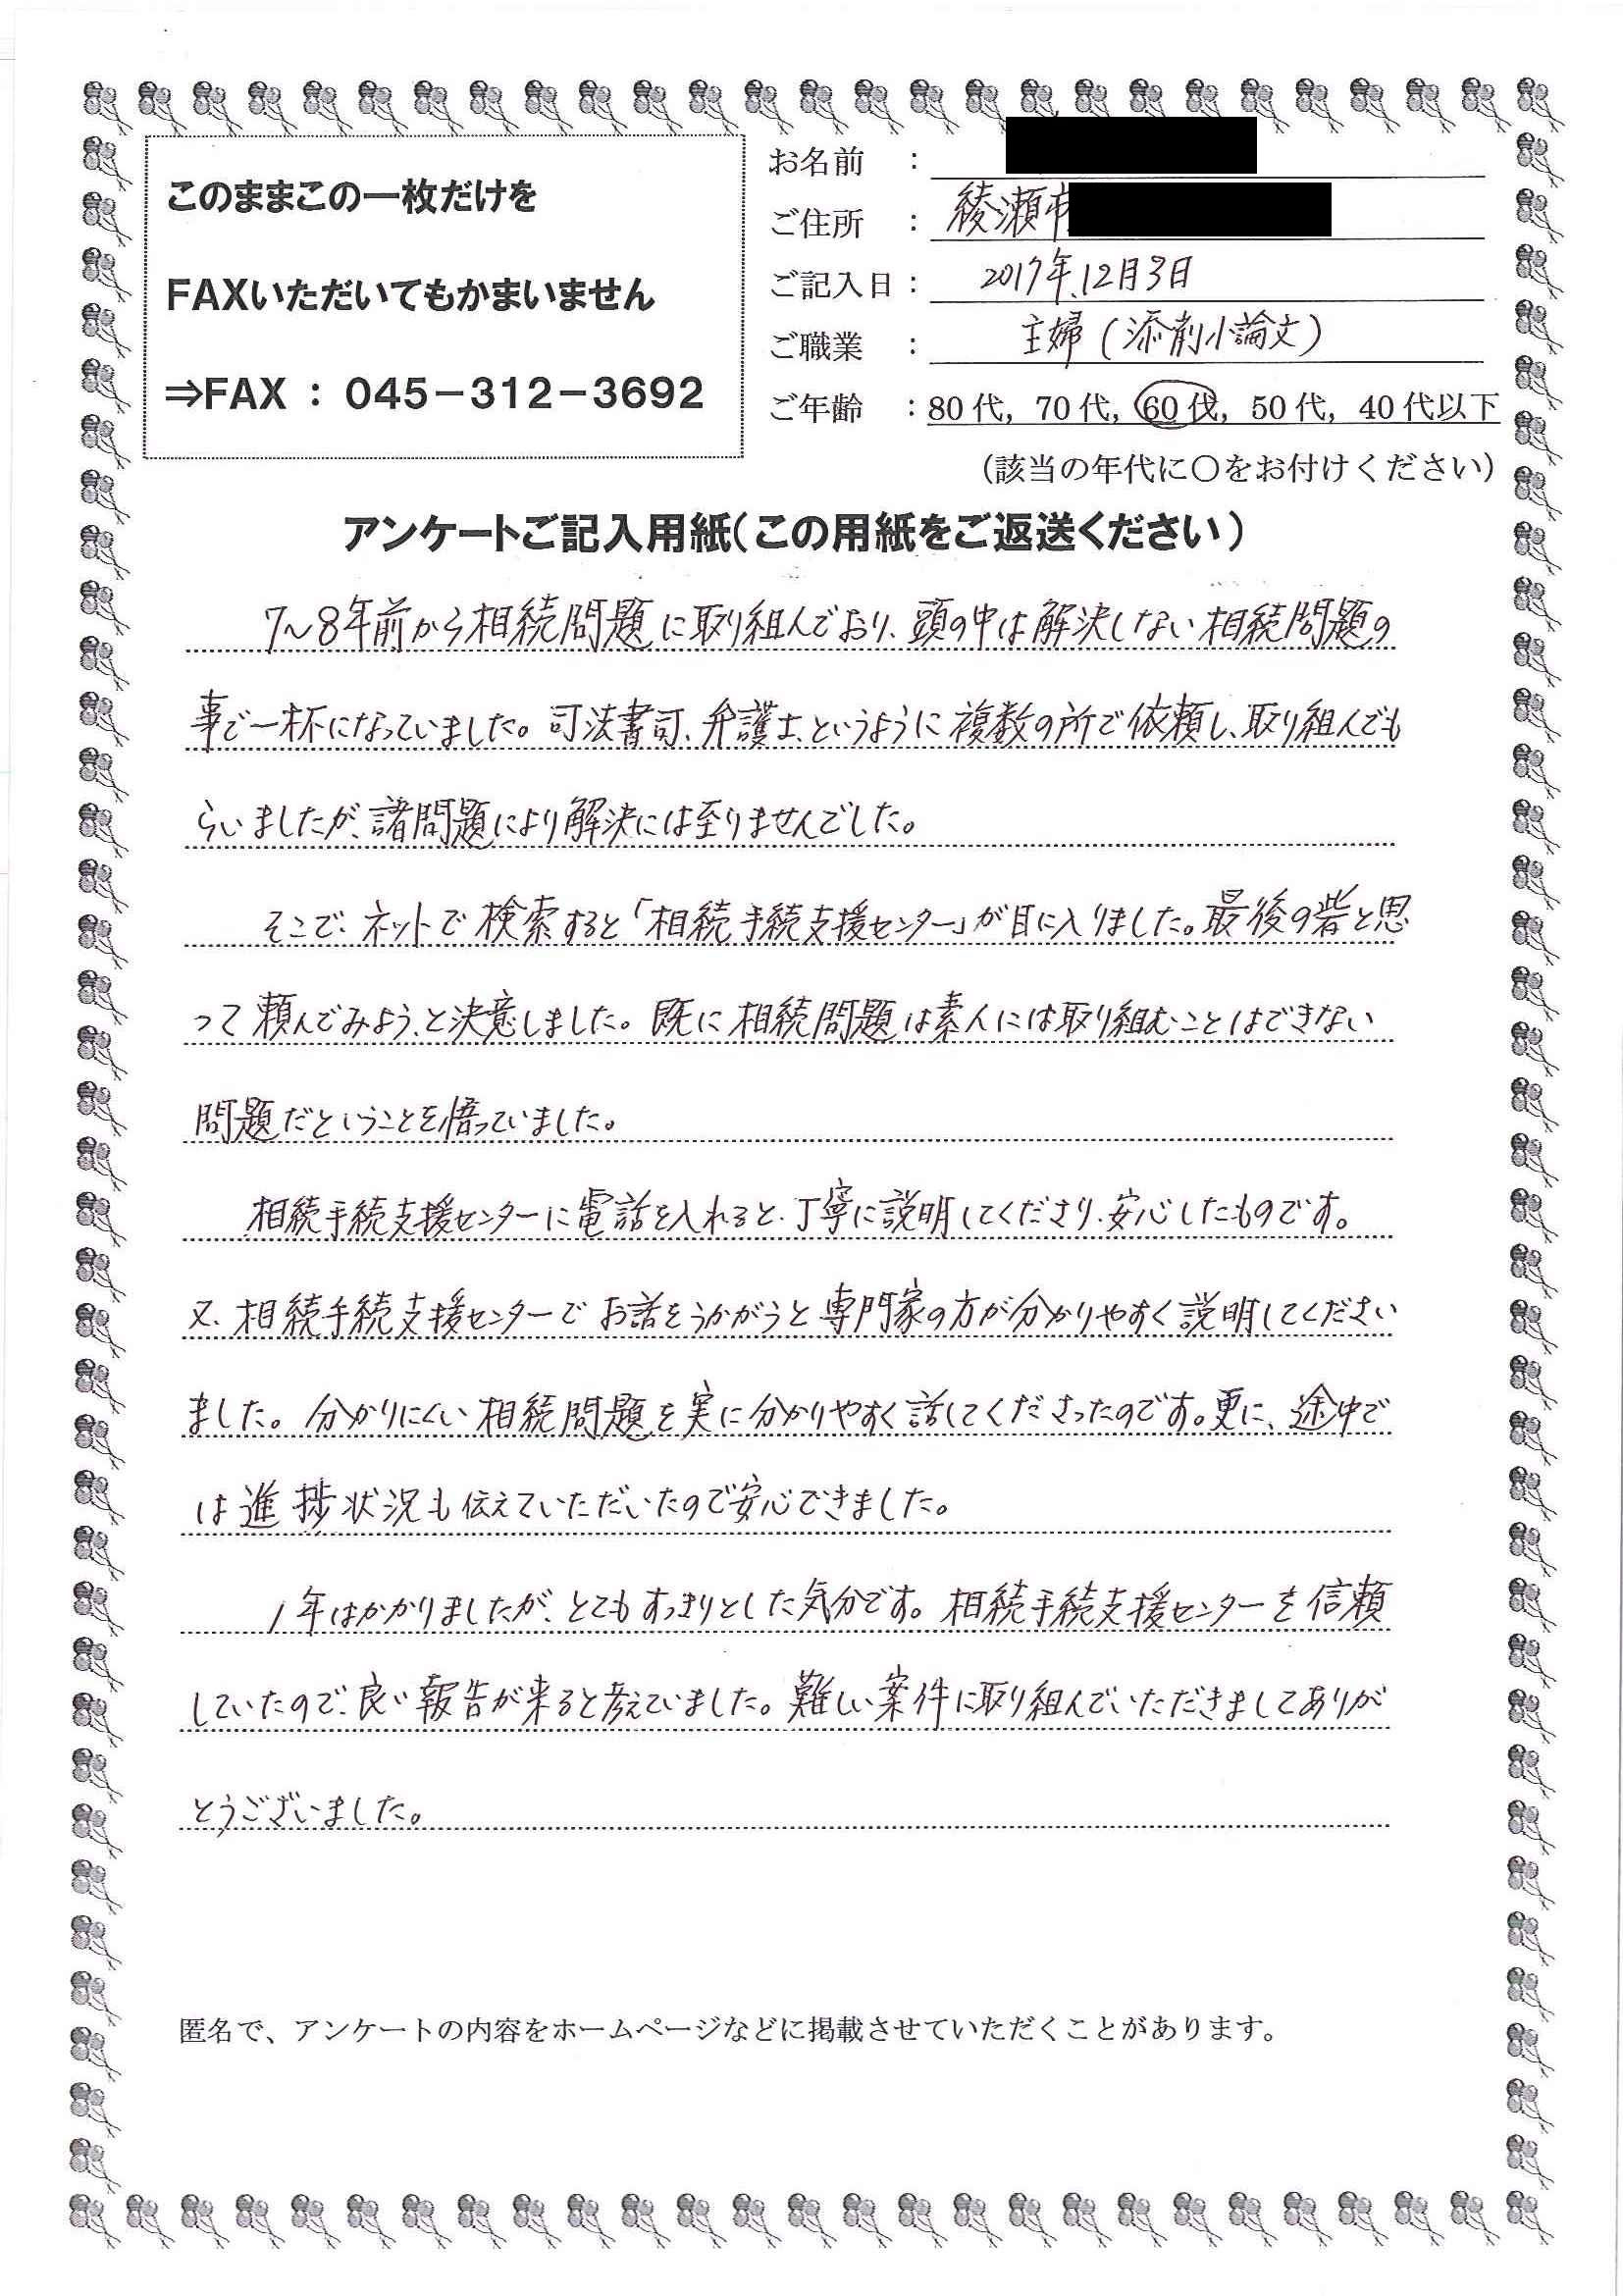 このままこの一枚だけを
FAXいただいてもかまいません
⇒FAX : 045-312-3692
お名前 :
ご住所 : 綾瀬市
ご記入日 : 2017年12月3日
ご職業 : 主婦(添削小論文)
ご年齢 : 80代, 70代, 60代, 50代, 40代以下
(該当の年代に○をお付けください)
アンケートご記入用紙(この用紙をご返送ください)
7～8年前から相続問題に取り組んでおり、頭の中は解決しない相続問題の
事で一杯になっていました。司法書司、弁護士、というように複数の所で依頼し、取り組んでも
らいましたが、諸問題により解決には至りませんでした。
そこで、ネットで検索すると「相続手続支援センター」が目に入りました。最後の砦と思
って頼んでみよう、と決意しました。既に相続問題は素人には取り組むことはできない
問題だということを悟っていました。
相続手続支援センターに電話を入れると、丁寧に説明してくださり、安心したものです。
又、相続手続支援センターでお話をうかがうと専門家の方が分かりやすく説明してください
ました。分かりにくい相続問題を実に分かりやすく話してくださったのです。更に、途中で
は進捗状況も伝えていただいたので安心できました。
1年はかかりましたが、とてもすっきりとした気分です。相続手続支援センターを信頼
していたので、良い報告が来ると考えていました。難しい案件に取り組んでいただきましてありが
とうございました。
匿名で、アンケートの内容をホームページなどに掲載させていただくことがあります。